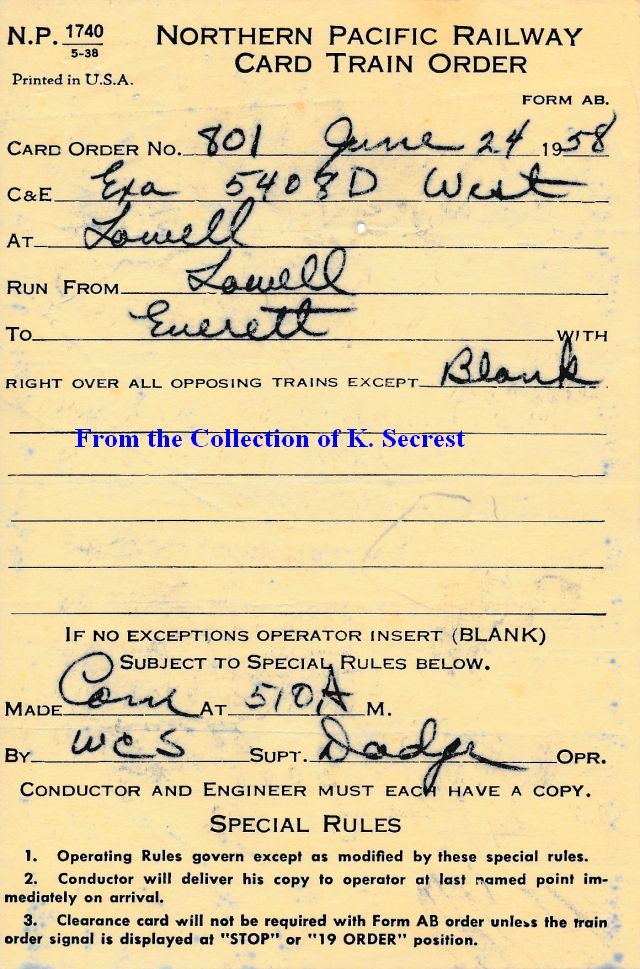 N.P. 1740
5-38
Printed in U.S.A.
NORTHERN PACIFIC RAILWAY
CARD TRAIN ORDER
FORM AB.
CARD ORDER No. 801 June 24 1958
C&E Exa 5408D West
AT Lowell
RUN FROM Lowell
TO Everett WITH
RIGHT OVER ALL OPPOSING TRAINS EXCEPT Blank
From the Collection of K. Secrest
IF NO EXCEPTIONS OPERATOR INSERT (BLANK)
SUBJECT TO SPECIAL RULES BELOW.
MADE Com AT 510 A M.
BY WCS SUPT. Dodge OPR.
CONDUCTOR AND ENGINEER MUST EACH HAVE A COPY.
SPECIAL RULES
1. Operating Rules govern except as modified by these special rules.
2. Conductor will deliver his copy to operator at last named point im-
mediately on arrival.
3. Clearance card will not be required with Form AB order unless the train
order signal is displayed at "STOP" or "19 ORDER" position.